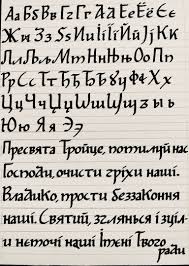 АаБбВвГгҐґДдЕеЁёЄє
ЖжЗзЅѕИиІіЇїЙйЈјКк
ЛлЉљМмНнЊњОоПп
РрСсТтЂђЋћУуФфХх
ЦцЧчЏџШшЩщъыь
ЮюЯяЭэ
Пресвята Тройце, помилуй нас
Господи, очисти гріхи наші.
Владико, прости беззаконня
наші. Святий, зглянься і зціли
немочі наші Імені Твого
ради